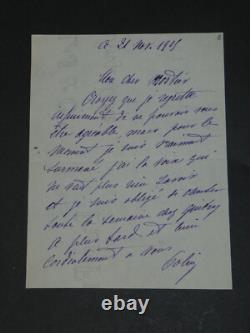 ce 21 Nov. 1921
Mon cher
Croyez que je regrette
infiniment de ne pouvoir vous
être agréable mais pour le
moment je suis vraiment
surmené j'ai la voix qui
ne veut plus rien savoir
et je suis obligé de chanter
toute la semaine chez
A plus tard et bien
cordialement à vous